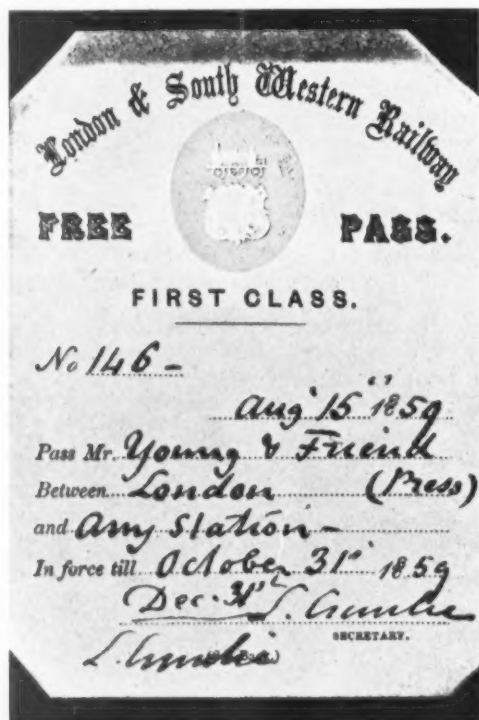 London & South Western Railway
FREE PASS.
FIRST CLASS.
No 146 -
Aug 15 1859
Pass Mr. Young & Friend
Between London (Press)
and Any Station -
In force till October 31st 1859
Dec. 31st L. Crombie
SECRETARY.
L. Crombie